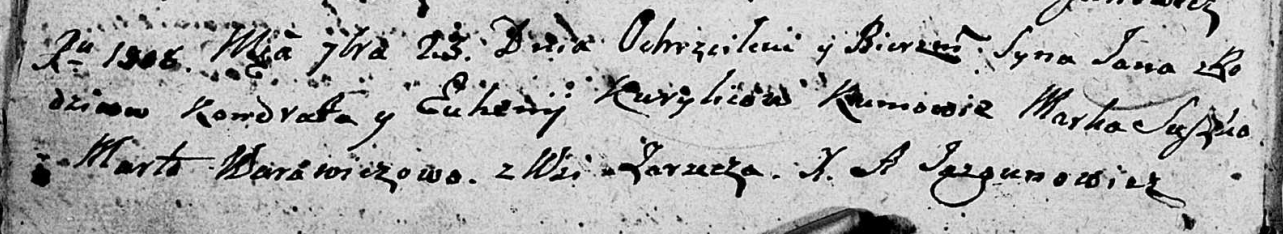 Jazgunowicz
Ru 1808. Mca 7bra 23. Dnia Ochrzciłem y Bierzm: Syna Jana z Ro
dziców Kondrata y Euhenij Kuryliców Kumowie Marko Suszko
Marta Warawiczowa. z Wsi Zarzecza. X. A Jazgunowicz